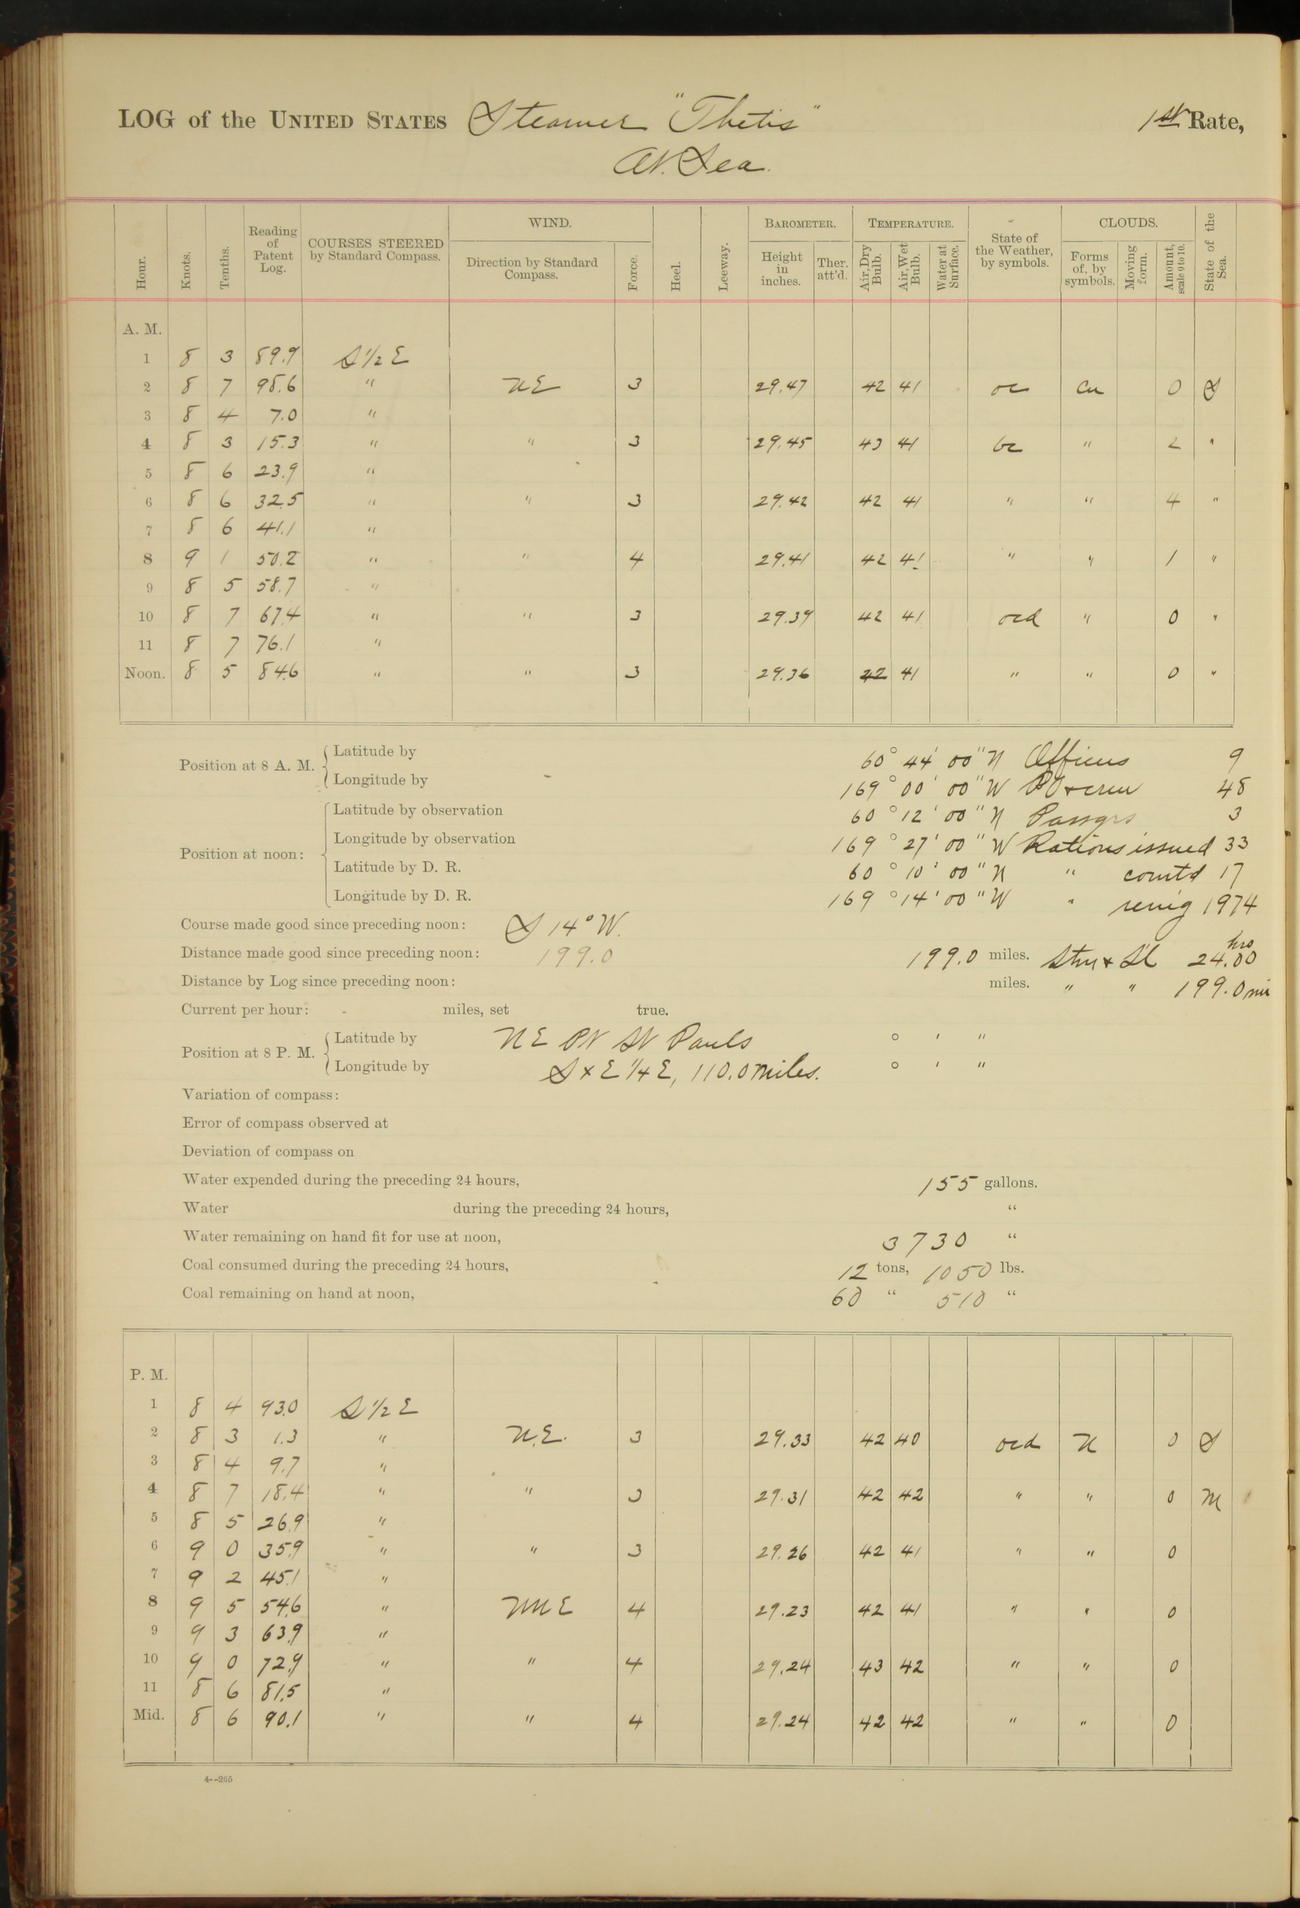 LOG of the UNITED STATES Steamer "Thetis" 1st Rate,
At Sea.
Hour. Knots. Tenths. Reading of Patent Log. COURSES STEERED by Standard Compass. WIND. Direction by Standard Compass. Force. Heel. Leeway. BAROMETER. Height in inches. Ther. att'd. TEMPERATURE. Air, Dry Bulb. Air, Wet Bulb. Water at Surface. State of the Weather, by symbols. CLOUDS. Forms of, by symbols. Moving form. Amount, scale 0 to 10. State of the Sea.
A. M.
1 8 3 89.9 S ½ E
2 8 7 98.6 " NE 3 29.47 42 41 oc Cu 0 S
3 8 4 7.0 "
4 8 3 15.3 " " 3 29.45 43 41 bc " 2 "
5 8 6 23.9 "
6 8 6 32.5 " " 3 29.42 42 41 " " 4 "
7 8 6 41.1 "
8 9 1 50.2 " " 4 29.41 42 41 " " 1 "
9 8 5 58.7 "
10 8 7 67.4 " " 3 29.39 42 41 ocd " 0 "
11 8 7 76.1 "
Noon. 8 5 84.6 " " 3 29.36 42 41 " " 0 "
Position at 8 A. M. Latitude by 60° 44' 00" N Officers 9
Longitude by 169° 00' 00" W PO & crew 48
Position at noon: Latitude by observation 60° 12' 00" N Passgrs 3
Longitude by observation 169° 27' 00" W Rations issued 33
Latitude by D. R. 60° 10' 00" N " comtd 17
Longitude by D. R. 169° 14' 00" W " remig 1974
Course made good since preceding noon: S 14° W.
Distance made good since preceding noon: 199.0 199.0 miles. Stm & Sl 24.00 hrs
Distance by Log since preceding noon: miles. " " 199.0 mi
Current per hour: - miles, set true.
Position at 8 P. M. Latitude by NE Pt St Pauls ° ' "
Longitude by S x E ¼ E, 110.0 miles. ° ' "
Variation of compass:
Error of compass observed at
Deviation of compass on
Water expended during the preceding 24 hours, 155 gallons.
Water during the preceding 24 hours, "
Water remaining on hand fit for use at noon, 3730 "
Coal consumed during the preceding 24 hours, 12 tons, 1050 lbs.
Coal remaining on hand at noon, 60 " 510 "
P. M.
1 8 4 93.0 S ½ E
2 8 3 1.3 " N.E. 3 29.33 42 40 ocd N 0 S
3 8 4 9.7 "
4 8 7 18.4 " " 3 29.31 42 42 " " 0 M
5 8 5 26.9 "
6 9 0 35.9 " " 3 29.26 42 41 " " 0
7 9 2 45.1 "
8 9 5 54.6 " NNE 4 29.23 42 41 " " 0
9 9 3 63.9 "
10 9 0 72.9 " " 4 29.24 43 42 " " 0
11 8 6 81.5 "
Mid. 8 6 90.1 " " 4 29.24 42 42 " " 0
4--265